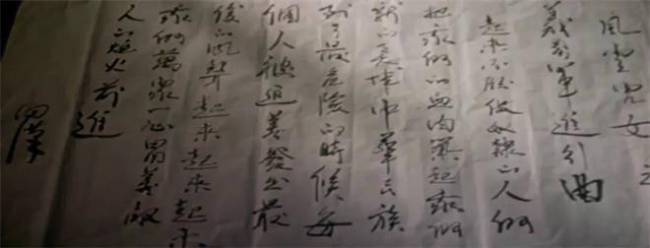 風雲兒女
義勇軍進行曲
起来不願做奴隸的人們
把我們的血肉築起我們
新的長城中華民族
到了最危險的時候每
個人被迫着發出最
後的吼聲起来起来起来
我們萬衆一心冒着敵
人的炮火前進
田漢